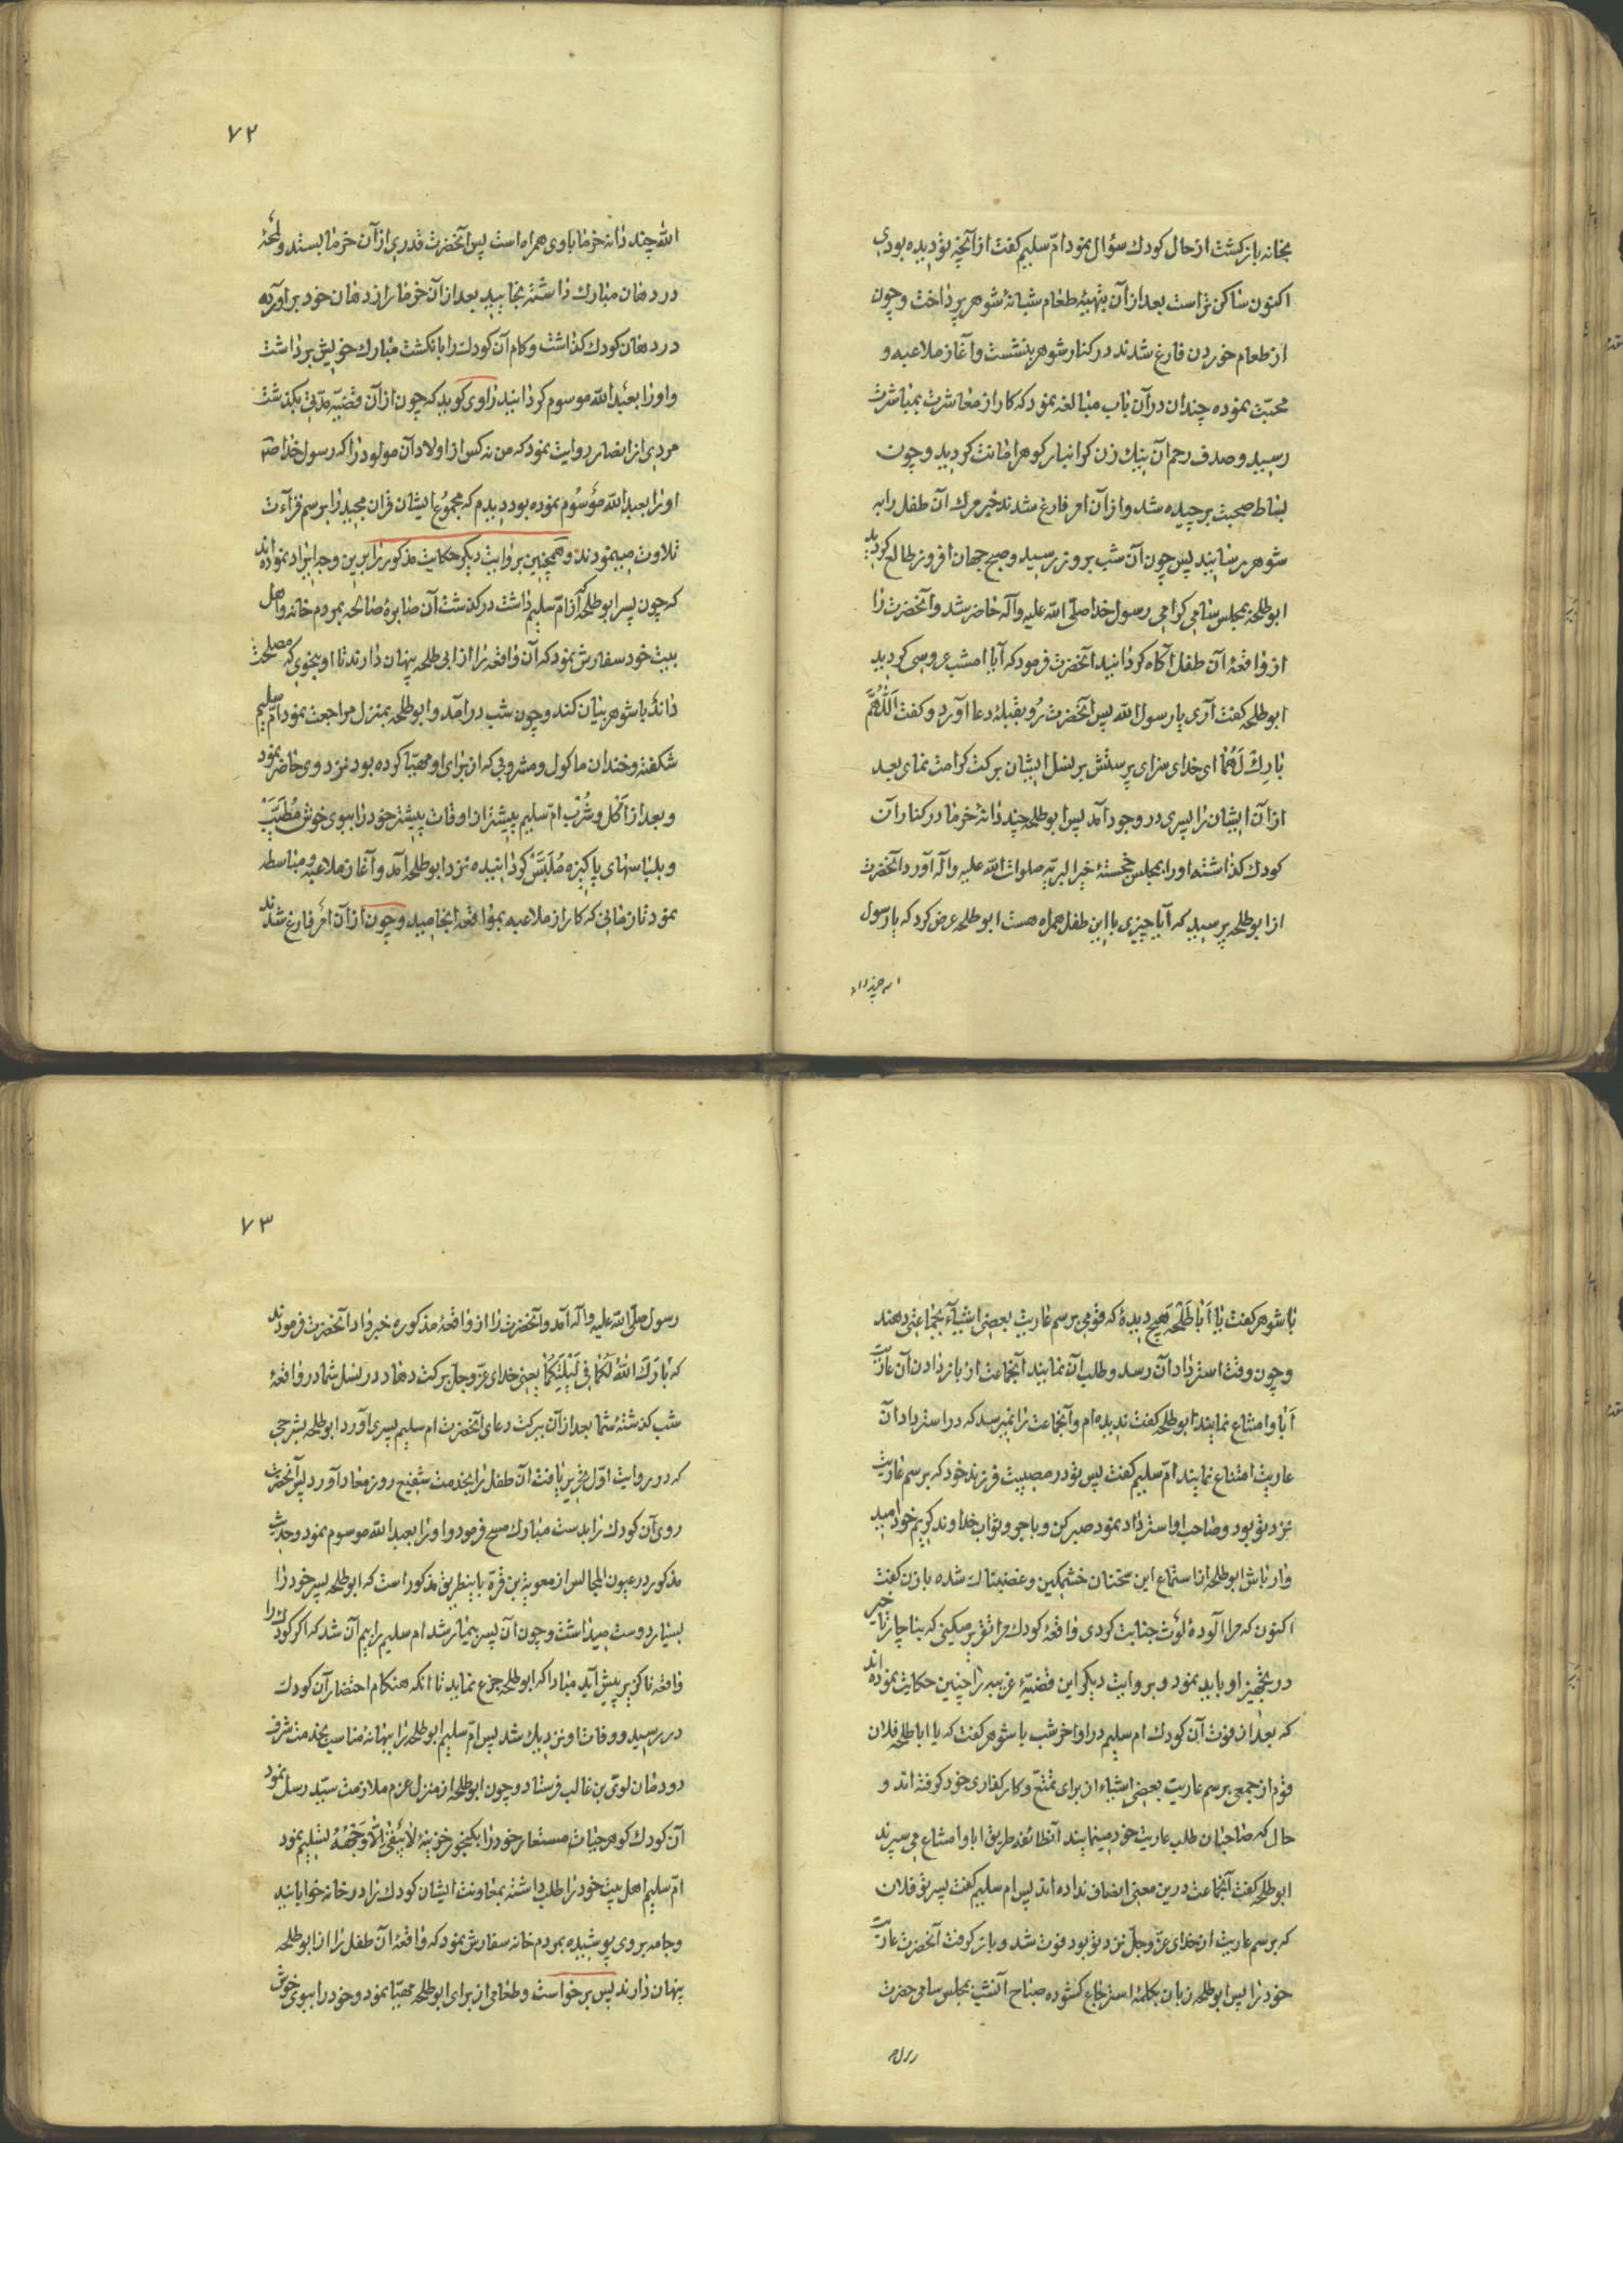 بخانه بازکشت از حال کودك سؤال نمود امّ سلیم کفت از آنچه تو دیده بودی
اکنون ساکن تر است بعد از آن بتهیۀ طعام شبانۀ شوهر پرداخت و چون
از طعام خوردن فارغ شدند در کنار شوهر بنشست و آغاز ملاعبه و
محبّت نموده چندان در آن باب مبالغه نمود که کار از معاشرت بمباشرت
رسید و صدف رحم آن نیك زن کرانبار کوهر امانت کردید و چون
بساط صحبت برچیده شد و از آن امر فارغ شدند خبر مرك آن طفل را به
شوهر رسانید پس چون آن شب بروز رسید و صبح جهان افروز طالع کردید
ابو طلحه بمجلس سامی کرامی رسول خدا صلّی الله علیه وآله حاضر شد و آنحضرت را
از واقعۀ آن طفل آکاه کردانید آنحضرت فرمود که آیا امشب عروسی کردید
ابو طلحه کفت آری یا رسول الله پس آنحضرت رُو بقبلۀ دعا آورد و کفت اَللّهُمَّ
بارِك لَهُمٰا ای خدای سزای پرستش بر نسل ایشان برکت کرامت نمای بعد
از آن ایشان را پسری در وجود آمد پس ابو طلحه چند دانۀ خرما در کنار آن
کودك کذاشته او را بمجلس خجستۀ خیر البریّه صلوات الله علیه وآله آورد آنحضرت
از ابو طلحه پرسید که آیا چیزی با این طفل همراه هست ابو طلحه عرض کرد که یا رسول
الله چند دانه
۷۲
الله چند دانه خرما با وی همراه است پس آنحضرت قدری از آن خرما بستد و لمحۀ
در دهان مبارك داشته بخایید بعد از آن خرما را از دهان خود برآورده
در دهان کودك کذاشت و کام آن کودك را بانکشت مبارك خویش برداشت
و او را بعبد الله موسوم کردانید راوی کوید که چون از آن قضیّه مدّتی بکذشت
مردی از انصار روایت نمود که من نه کس از اولاد آن مولود را که رسول خدا ص
او را بعبد الله مَوْسُوم نموده بود دیدم که مجموع ایشان قران مجید را برسم قرآءت
تلاوت مینمودند و همچنین بروایت دیکر حکایت مذکور را برین وجه ایراد نموده اند
که چون پسر ابو طلحه که از امّ سلیم داشت درکذشت آن صابرۀ صالحه بمردم خانه و اهل
بیت خود سفارش نمود که آن واقعه را از ابی طلحه پنهان دارند تا او بنحوی که مصلحت
داند با شوهر بیان کند و چون شب درآمد و ابو طلحه بمنزل مراجعت نمود امّ سلیم
شکفته و خندان ماکول و مشروبی که از برای او مهیّا کرده بود نزد وی حاضر نمود
و بعد از اَکْل و شُرْب امّ سلیم بیشتر از اوقات پیشتر خود را ببوی خوش مُطَیَّبْ
و بلباسهای پاکیزه مُلَبَّسْ کردانیده نزد ابو طلحه آمد و آغاز ملاعبه و مباسطه
نمود تا زمانی که کار از ملاعبه بمواقعه انجامید و چون از آن امر فارغ شدند
با شوهر کفت یٰا اَبٰا طَلْحَه هیچ دیدۀ که قومی برسم عاریت بعضی اشیآء بجماعتی دهند
و چون وقت استرداد آن رسد و طلب آن نمایند آنجماعت از باز دادن آن عاریت
اَبٰا و امتناع نمایند ابو طلحه کفت ندیده ام و آنجماعت را نمیرسد که در استرداد آن
عاریت امتناع نمایند امّ سلیم کفت پس تو در مصیبت فرزند خود که برسم عاریت
نزد تو بود و صاحب او استرداد نمود صبر کن و باجر و ثواب خداوند کریم خود امید
وار باش ابو طلحه از استماع این سخنان خشمکین و غضبناك شده با زن کفت
اکنون که مرا آلودۀ لَوْث جنابت کردی واقعۀ کودك مرا تقریر میکنی که بناچار تاخیر
در تجهیز او باید نمود و بروایت دیکر این قضیّۀ غریبه را چنین حکایت نموده اند
که بعد از فوت آن کودك ام سلیم در اواخر شب با شوهر کفت که یا ابا طلحه فلان
قوم از جمعی برسم عاریت بعضی اشیاء از برای تمتّع و کارکذاری خود کرفته اند و
حال که صاحبان طلب عاریت خود مینمایند آنطائفه طریق ابا و امتناع می سپرند
ابو طلحه کفت آنجماعت درین معنی انصاف نداده اند پس ام سلیم کفت پسر تو فلان
که برسم عاریت از خدای عزّ وجلّ نزد تو بود فوت شد و باز کرفت آنحضرت عاریت
خود را پس ابو طلحه زبان بکلمۀ استرجاع کشوده صباح آنشب بمجلس سامی حضرت
رسول
۷۳
رسول صلّی الله علیه وآله آمد و آنحضرت را از واقعۀ مذکوره خبر داد آنحضرت فرمودند
که بٰارَكَ اللهُ لَکُمٰا فِی لَیْلَتِکُمٰا یعنی خدای عزّ وجلّ برکت دهاد در نسل شما در واقعۀ
شب کذشتۀ شما بعد از آن ببرکت دعای آنحضرت ام سلیم پسری آورد ابو طلحه بشرحی
که در روایت اوّل تحریر یافت آن طفل را بخدمت شفیع روز معاد آورد پس آنحضرت
روی آن کودك را بدست مبارك مسح فرمود و او را بعبد الله موسوم نمود و حدیث
مذکور در عیون المجالس از معویة بن قرة باینطریق مذکور است که ابو طلحه پسر خود را
بسیار دوست میداشت و چون آن پسر بیمار شد ام سلیم را بیم آن شد که اکر کودك را
واقعه ناکزیر پیش آید مبادا که ابو طلحه جزع نماید تا آنکه هنکام احتضار آن کودك
در رسید و وفات او نزدیك شد پس امّ سلیم ابو طلحه را ببهانۀ مناسب بخدمت شرف
دودمان لویّ بن غالب فرستاد و چون ابو طلحه از منزل عزم ملازمت سیّد رسل نمود
آن کودك کوهر حیات مستعار خود را بکنجور خزینۀ لاٰ یَبْقیٰ اِلّاٰ وَجْهُهُ تسلیم نمود
امّ سلیم اهل بیت خود را طلب داشته بمعاونت ایشان کودك را در خانه خوابانید
و جامه بر وی پوشیده بمردم خانه سفارش نمود که واقعۀ آن طفل را از ابو طلحه
پنهان دارند پس برخواست و طعامی از برای ابو طلحه مهیّا نمود و خود را ببوی خوش